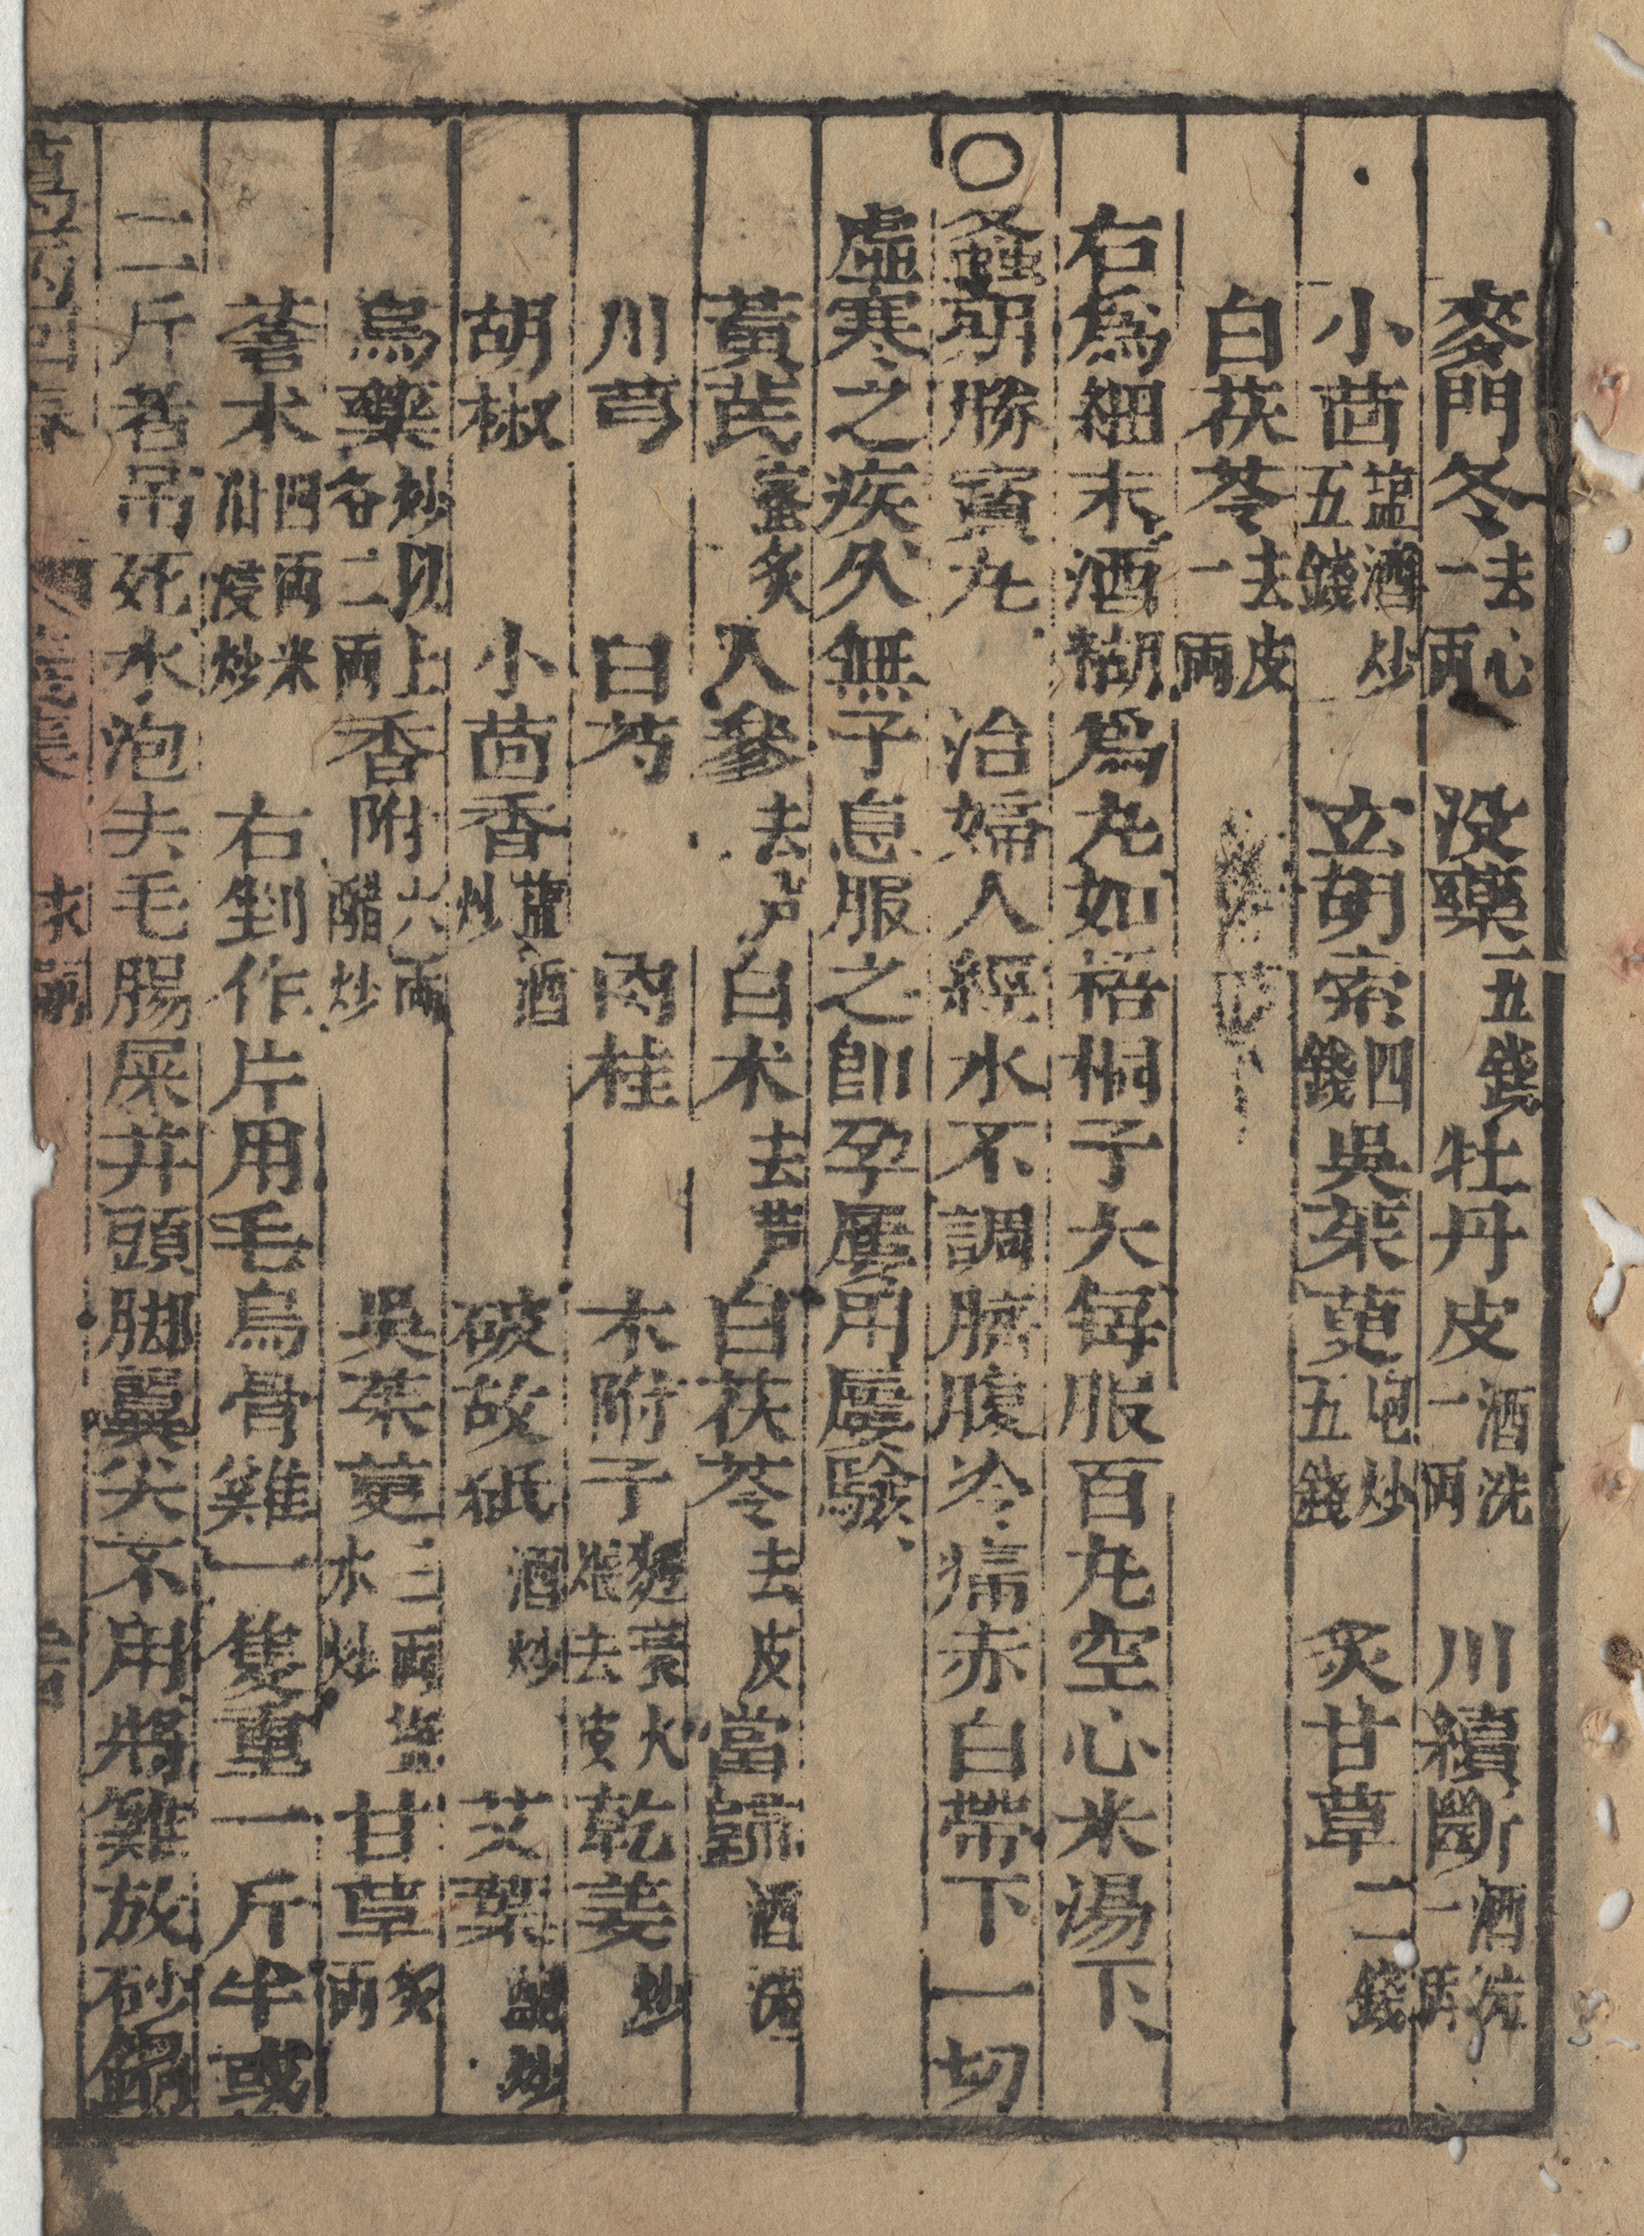 麥門冬去心一兩 没藥一五錢 牡丹皮酒洗一兩 川續斷酒洗一兩
小茴塩酒炒五錢 玄胡索四錢 吳茱萸炮炒五錢 炙甘草二錢
白茯苓去皮一兩
右爲細末酒糊爲丸如梧桐子大每服百丸空心米湯下
〇螽斯勝寶丸 治婦人經水不調臍腹冷痛赤白帶下一切
虛寒之疾久無子息服之卽孕屢用屢驗
黃芪蜜炙 人參去芦 白术去芦 白茯苓去皮 當歸酒洗
川芎 白芍 肉桂 大附子麵裹火煨去皮 乾姜炒
胡椒 小茴香塩酒炒 破故紙酒炒 艾葉醋炒
烏藥炒切上各二兩 香附六兩醋炒 吳茱萸三兩塩水炒 甘草炙兩
蒼术四兩米泔浸炒 右剉作片用毛烏骨雞一隻重一斤半或
二斤者吊死水泡去毛腸屎并頭脚翼尖不用將雞放砂鍋
萬病回春 求嗣